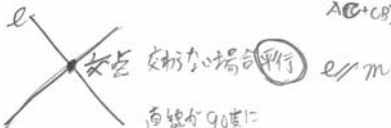 AC+CB
l
交点 交わらない場合 平行 l // m
直線が90度に